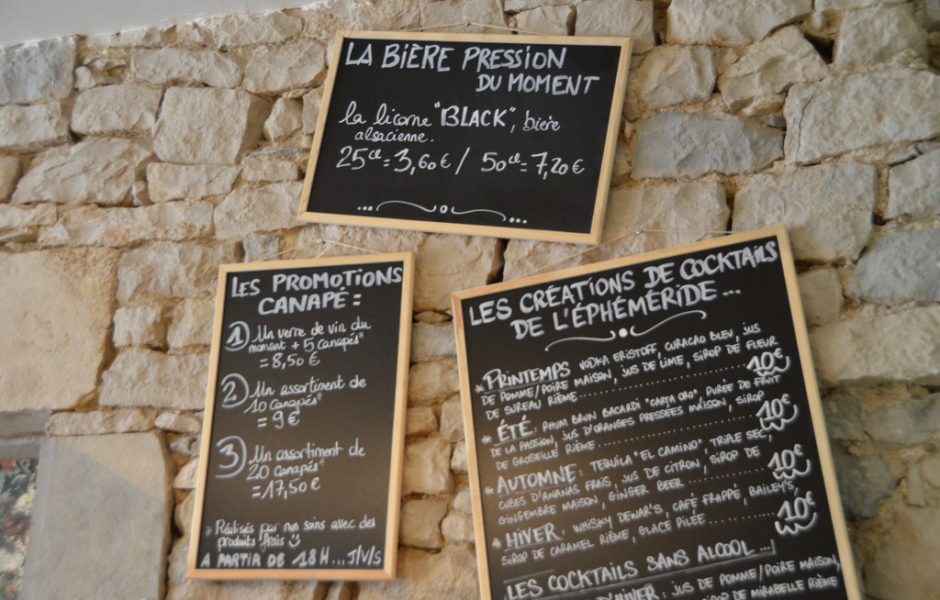 LA BIÈRE PRESSION
DU MOMENT
la licorne "BLACK", bière
alsacienne.
25cl = 3,60€ / 50cl = 7,20€
LES PROMOTIONS
CANAPÉ :
1 Un verre de vin du
moment + 5 canapés*
= 8,50 €
2 Un assortiment de
10 canapés*
= 9€
3 Un assortiment de
20 canapés*
= 17,50€
* Réalisés par nos soins avec des
produits frais
A PARTIR DE 18H... J/V/S
LES CRÉATIONS DE COCKTAILS
DE L'ÉPHÉMÉRIDE...
* PRINTEMPS VODKA ERISTOFF, CURACAO BLEU, JUS
DE POMME/POIRE MAISON, JUS DE LIME, SIROP DE FLEUR
DE SUREAU RIÈME 10€
* ÉTÉ : RHUM BRUN BACARDI "CARTA ORO", PURÉE DE FRUIT
DE LA PASSION, JUS D'ORANGES PRESSÉES MAISON, SIROP
DE GROSEILLE RIÈME 10€
* AUTOMNE : TEQUILA "EL CAMINO", TRIPLE SEC,
CUBES D'ANANAS FRAIS, JUS DE CITRON, SIROP DE
GINGEMBRE MAISON, GINGER BEER 10€
* HIVER : WHISKY DEWAR'S, CAFÉ FRAPPÉ, BAILEY'S,
SIROP DE CARAMEL RIÈME, GLACE PILÉE 10€
LES COCKTAILS SANS ALCOOL...
D'HIVER : JUS DE POMME/POIRE MAISON,
SIROP DE MIRABELLE RIÈME